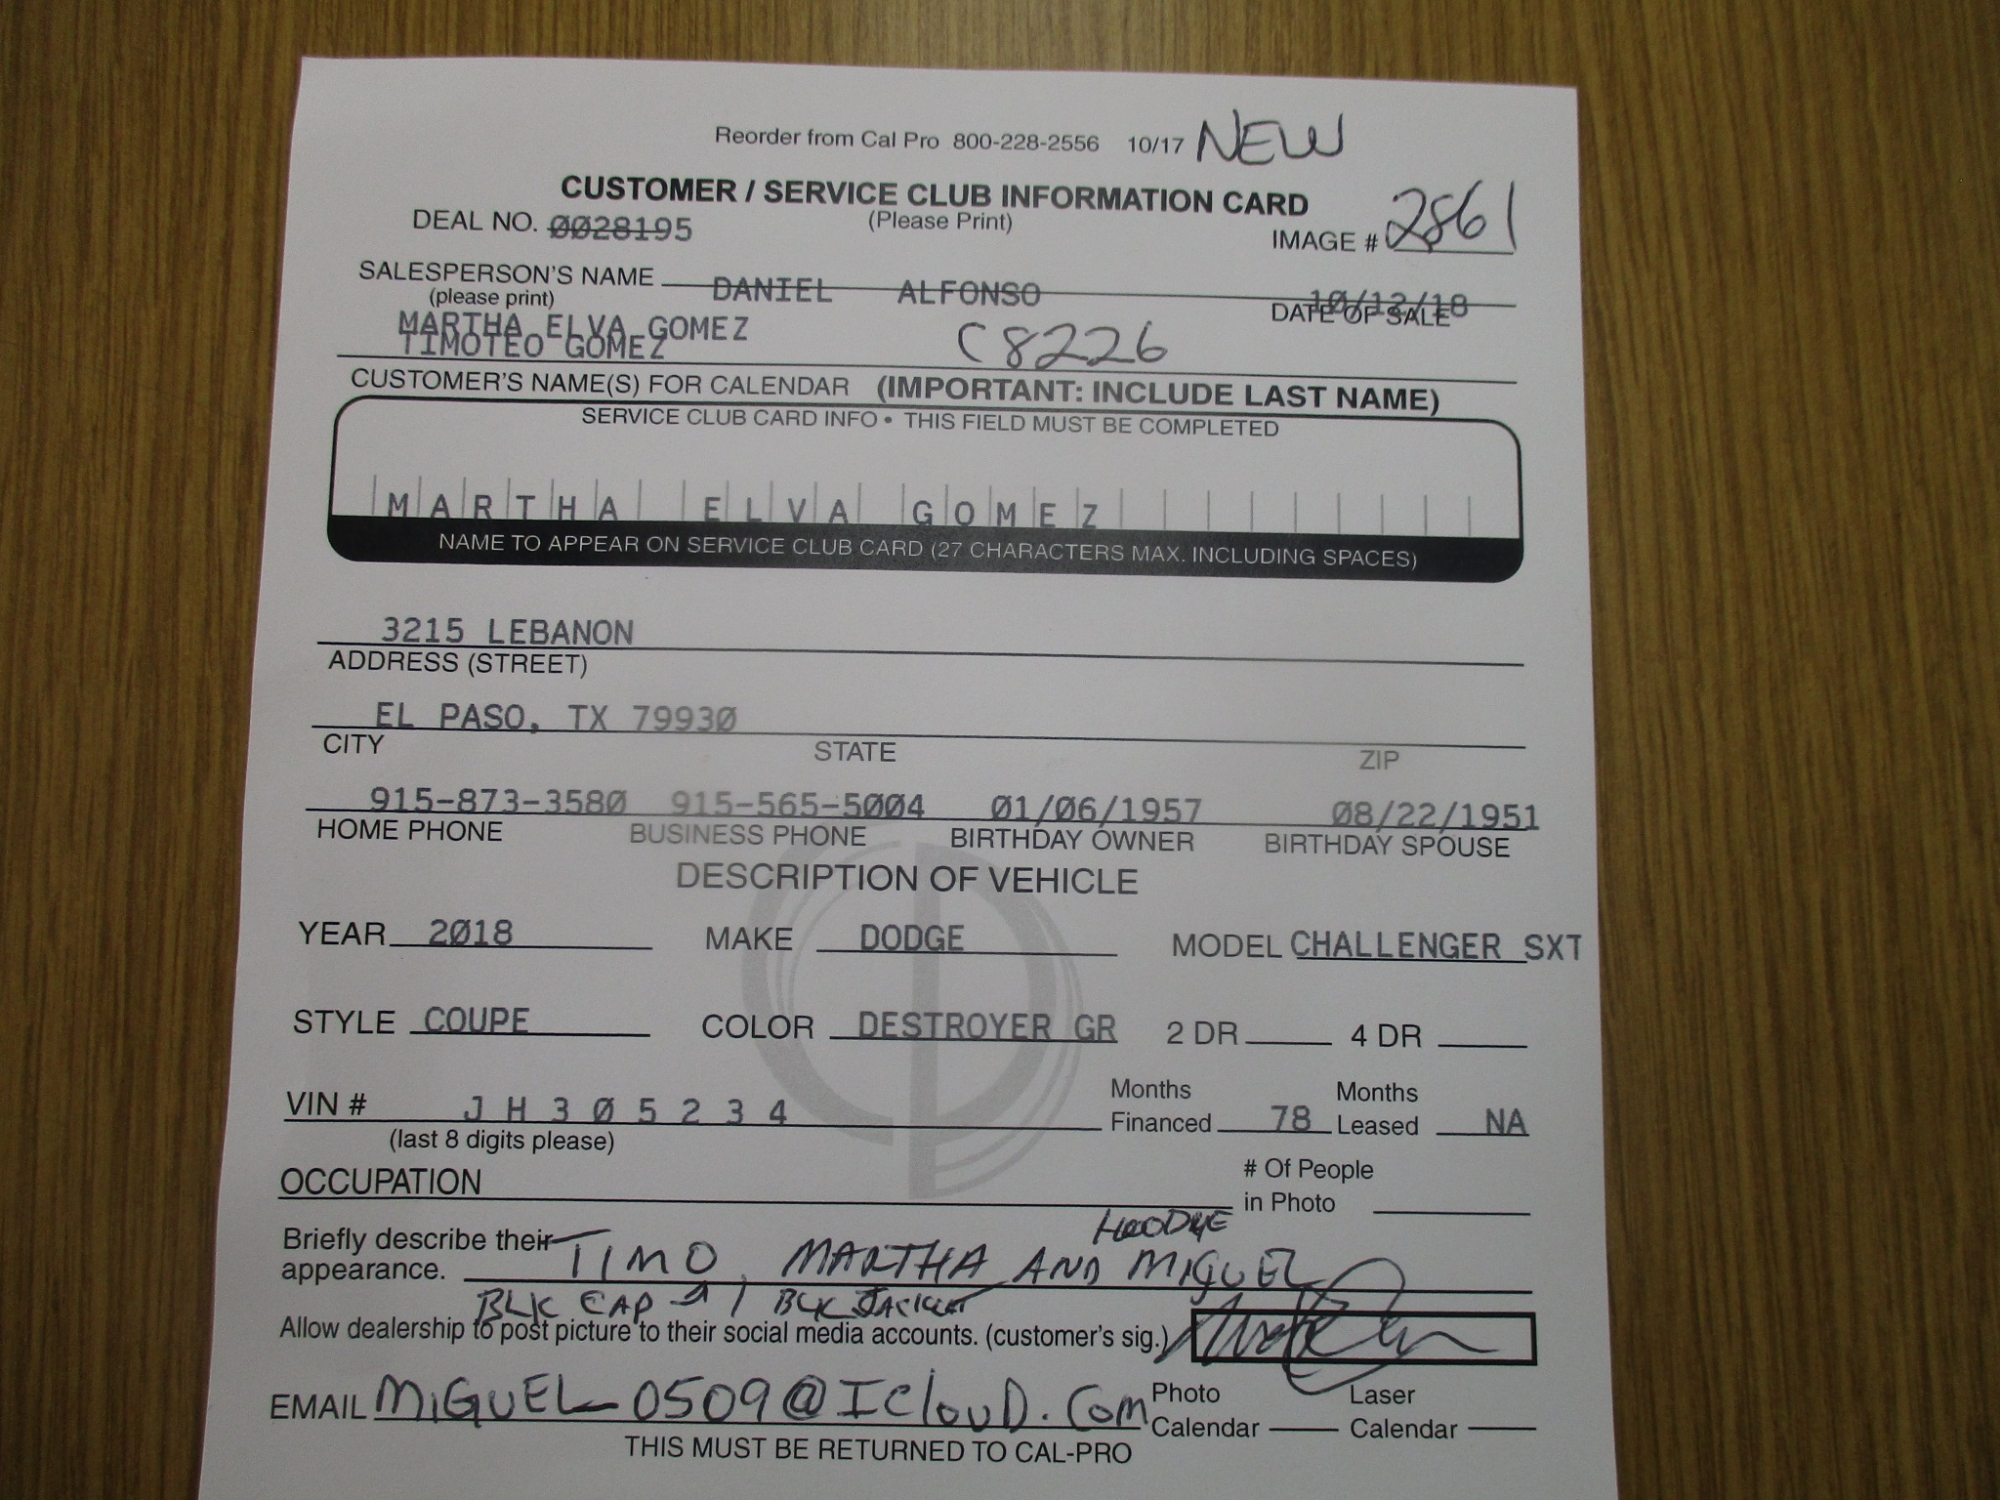 Reorder from Cal Pro 800-228-2556 10/17 NEW
CUSTOMER / SERVICE CLUB INFORMATION CARD
DEAL NO. 0028195 (Please Print) IMAGE # 2861
SALESPERSON'S NAME DANIEL ALFONSO 10/12/18
(please print) DATE OF SALE
MARTHA ELVA GOMEZ
TIMOTEO GOMEZ C8226
CUSTOMER'S NAME(S) FOR CALENDAR (IMPORTANT: INCLUDE LAST NAME)
SERVICE CLUB CARD INFO • THIS FIELD MUST BE COMPLETED
MARTHA ELVA GOMEZ
NAME TO APPEAR ON SERVICE CLUB CARD (27 CHARACTERS MAX. INCLUDING SPACES)
3215 LEBANON
ADDRESS (STREET)
EL PASO, TX 79930
CITY STATE ZIP
915-873-3580 915-565-5004 01/06/1957 08/22/1951
HOME PHONE BUSINESS PHONE BIRTHDAY OWNER BIRTHDAY SPOUSE
DESCRIPTION OF VEHICLE
YEAR 2018 MAKE DODGE MODEL CHALLENGER SXT
STYLE COUPE COLOR DESTROYER GR 2 DR 4 DR
VIN # JH305234 Months Financed 78 Months Leased NA
(last 8 digits please)
OCCUPATION # Of People in Photo
HOODYE
Briefly describe their appearance. TIMO, MARTHA AND MIGUEL
BLK CAP BLK JACKET
Allow dealership to post picture to their social media accounts. (customer's sig.)
EMAIL MIGUEL_0509@ICLOUD.COM Photo Calendar Laser Calendar
THIS MUST BE RETURNED TO CAL-PRO